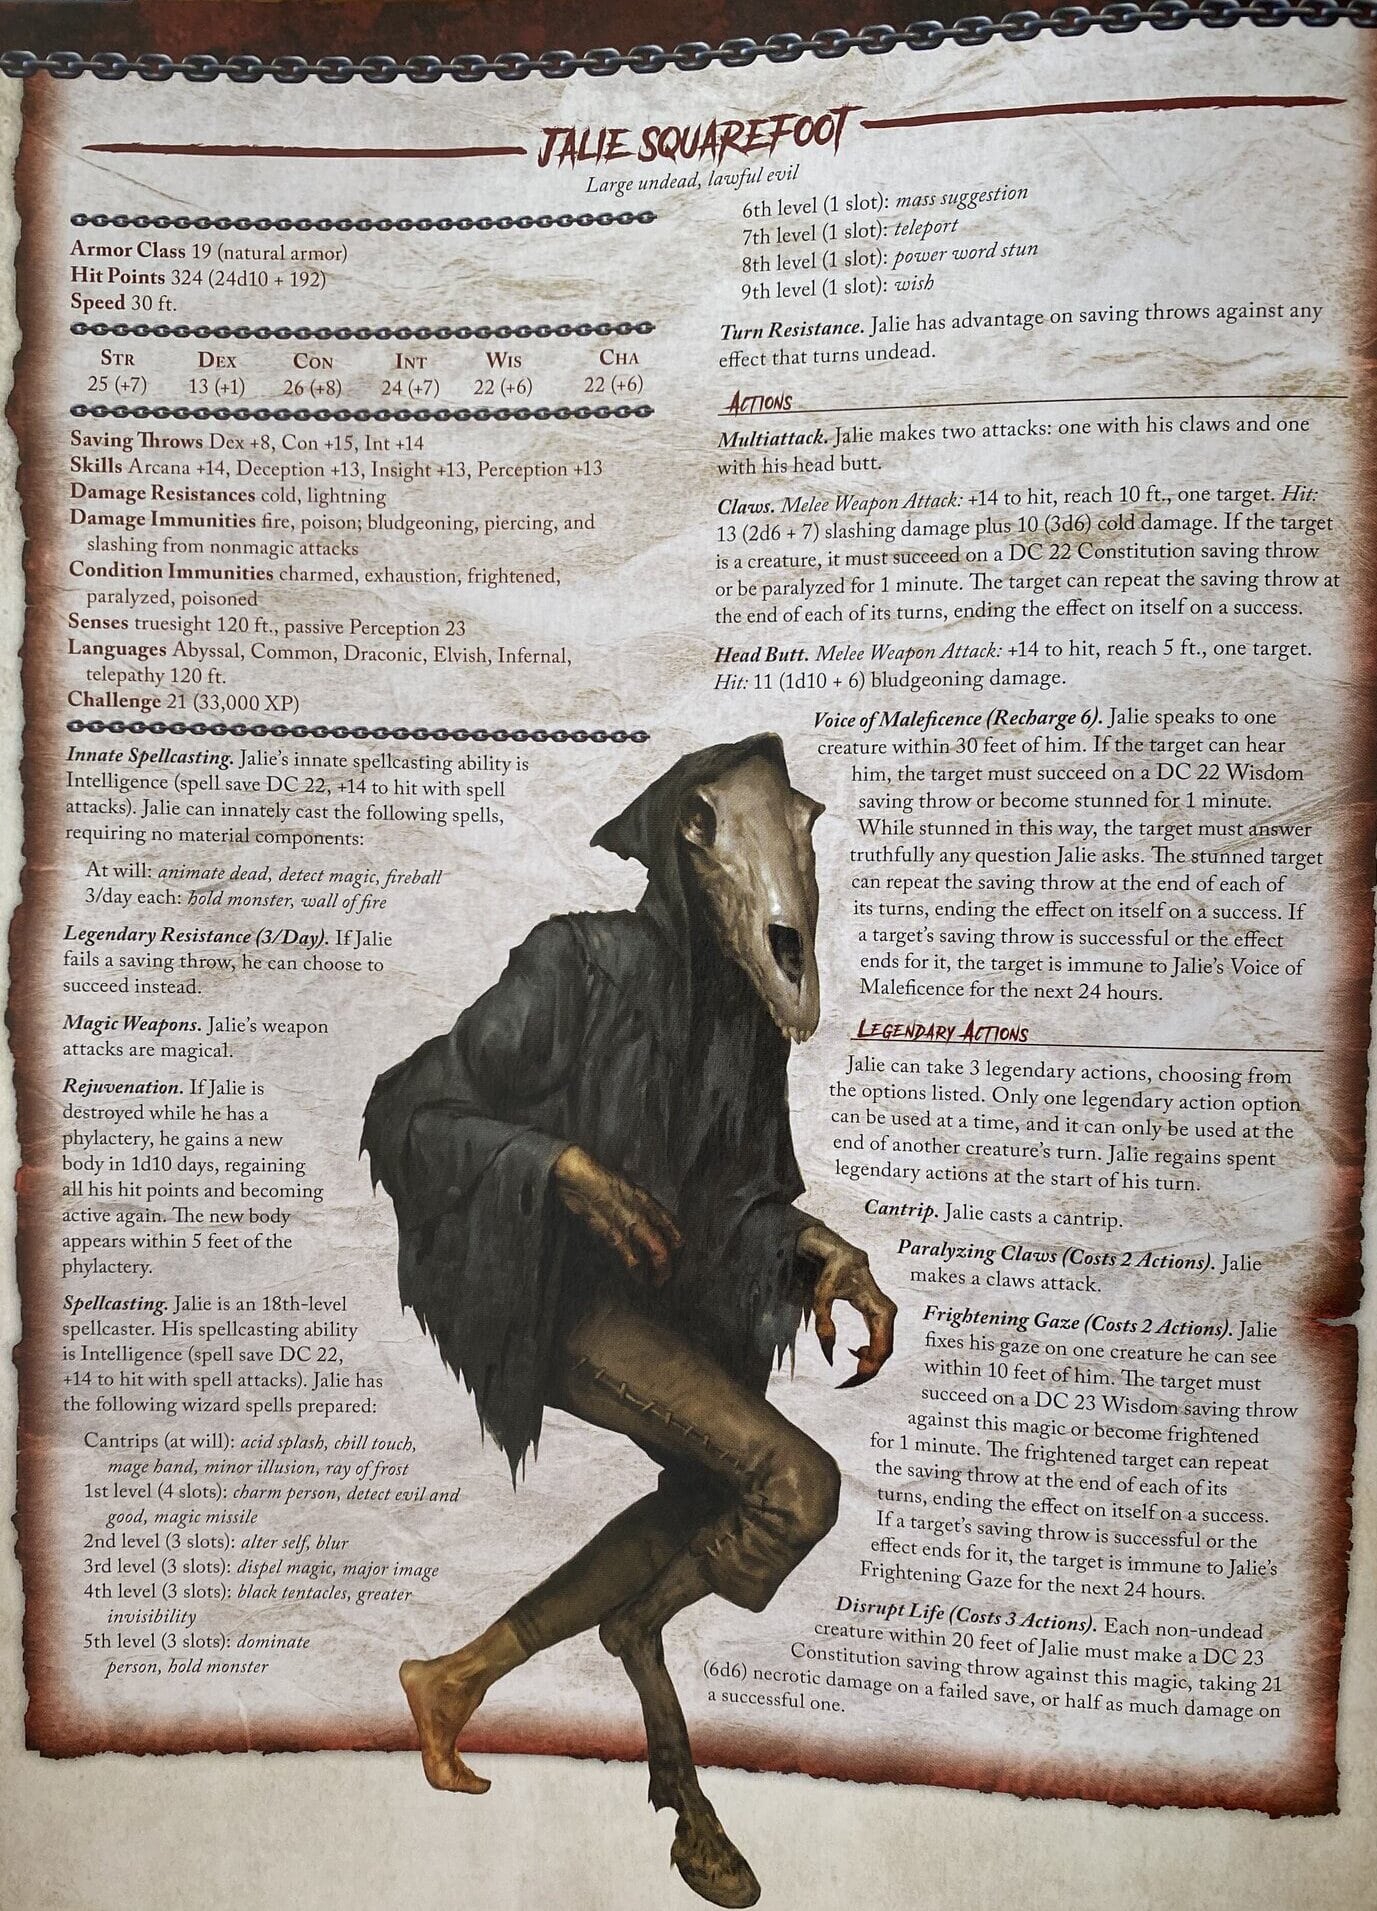 JALIE SQUAREFOOT
Large undead, lawful evil
Armor Class 19 (natural armor)
Hit Points 324 (24d10 + 192)
Speed 30 ft.
STR DEX CON INT WIS CHA
25 (+7) 13 (+1) 26 (+8) 24 (+7) 22 (+6) 22 (+6)
Saving Throws Dex +8, Con +15, Int +14
Skills Arcana +14, Deception +13, Insight +13, Perception +13
Damage Resistances cold, lightning
Damage Immunities fire, poison; bludgeoning, piercing, and
slashing from nonmagic attacks
Condition Immunities charmed, exhaustion, frightened,
paralyzed, poisoned
Senses truesight 120 ft., passive Perception 23
Languages Abyssal, Common, Draconic, Elvish, Infernal,
telepathy 120 ft.
Challenge 21 (33,000 XP)
Innate Spellcasting. Jalie's innate spellcasting ability is
Intelligence (spell save DC 22, +14 to hit with spell
attacks). Jalie can innately cast the following spells,
requiring no material components:
At will: animate dead, detect magic, fireball
3/day each: hold monster, wall of fire
Legendary Resistance (3/Day). If Jalie
fails a saving throw, he can choose to
succeed instead.
Magic Weapons. Jalie's weapon
attacks are magical.
Rejuvenation. If Jalie is
destroyed while he has a
phylactery, he gains a new
body in 1d10 days, regaining
all his hit points and becoming
active again. The new body
appears within 5 feet of the
phylactery.
Spellcasting. Jalie is an 18th-level
spellcaster. His spellcasting ability
is Intelligence (spell save DC 22,
+14 to hit with spell attacks). Jalie has
the following wizard spells prepared:
Cantrips (at will): acid splash, chill touch,
mage hand, minor illusion, ray of frost
1st level (4 slots): charm person, detect evil and
good, magic missile
2nd level (3 slots): alter self, blur
3rd level (3 slots): dispel magic, major image
4th level (3 slots): black tentacles, greater
invisibility
5th level (3 slots): dominate
person, hold monster
6th level (1 slot): mass suggestion
7th level (1 slot): teleport
8th level (1 slot): power word stun
9th level (1 slot): wish
Turn Resistance. Jalie has advantage on saving throws against any
effect that turns undead.
ACTIONS
Multiattack. Jalie makes two attacks: one with his claws and one
with his head butt.
Claws. Melee Weapon Attack: +14 to hit, reach 10 ft., one target. Hit:
13 (2d6 + 7) slashing damage plus 10 (3d6) cold damage. If the target
is a creature, it must succeed on a DC 22 Constitution saving throw
or be paralyzed for 1 minute. The target can repeat the saving throw at
the end of each of its turns, ending the effect on itself on a success.
Head Butt. Melee Weapon Attack: +14 to hit, reach 5 ft., one target.
Hit: 11 (1d10 + 6) bludgeoning damage.
Voice of Maleficence (Recharge 6). Jalie speaks to one
creature within 30 feet of him. If the target can hear
him, the target must succeed on a DC 22 Wisdom
saving throw or become stunned for 1 minute.
While stunned in this way, the target must answer
truthfully any question Jalie asks. The stunned target
can repeat the saving throw at the end of each of
its turns, ending the effect on itself on a success. If
a target's saving throw is successful or the effect
ends for it, the target is immune to Jalie's Voice of
Maleficence for the next 24 hours.
LEGENDARY ACTIONS
Jalie can take 3 legendary actions, choosing from
the options listed. Only one legendary action option
can be used at a time, and it can only be used at the
end of another creature's turn. Jalie regains spent
legendary actions at the start of his turn.
Cantrip. Jalie casts a cantrip.
Paralyzing Claws (Costs 2 Actions). Jalie
makes a claws attack.
Frightening Gaze (Costs 2 Actions). Jalie
fixes his gaze on one creature he can see
within 10 feet of him. The target must
succeed on a DC 23 Wisdom saving throw
against this magic or become frightened
for 1 minute. The frightened target can repeat
the saving throw at the end of each of its
turns, ending the effect on itself on a success.
If a target's saving throw is successful or the
effect ends for it, the target is immune to Jalie's
Frightening Gaze for the next 24 hours.
Disrupt Life (Costs 3 Actions). Each non-undead
creature within 20 feet of Jalie must make a DC 23
Constitution saving throw against this magic, taking 21
(6d6) necrotic damage on a failed save, or half as much damage on
a successful one.